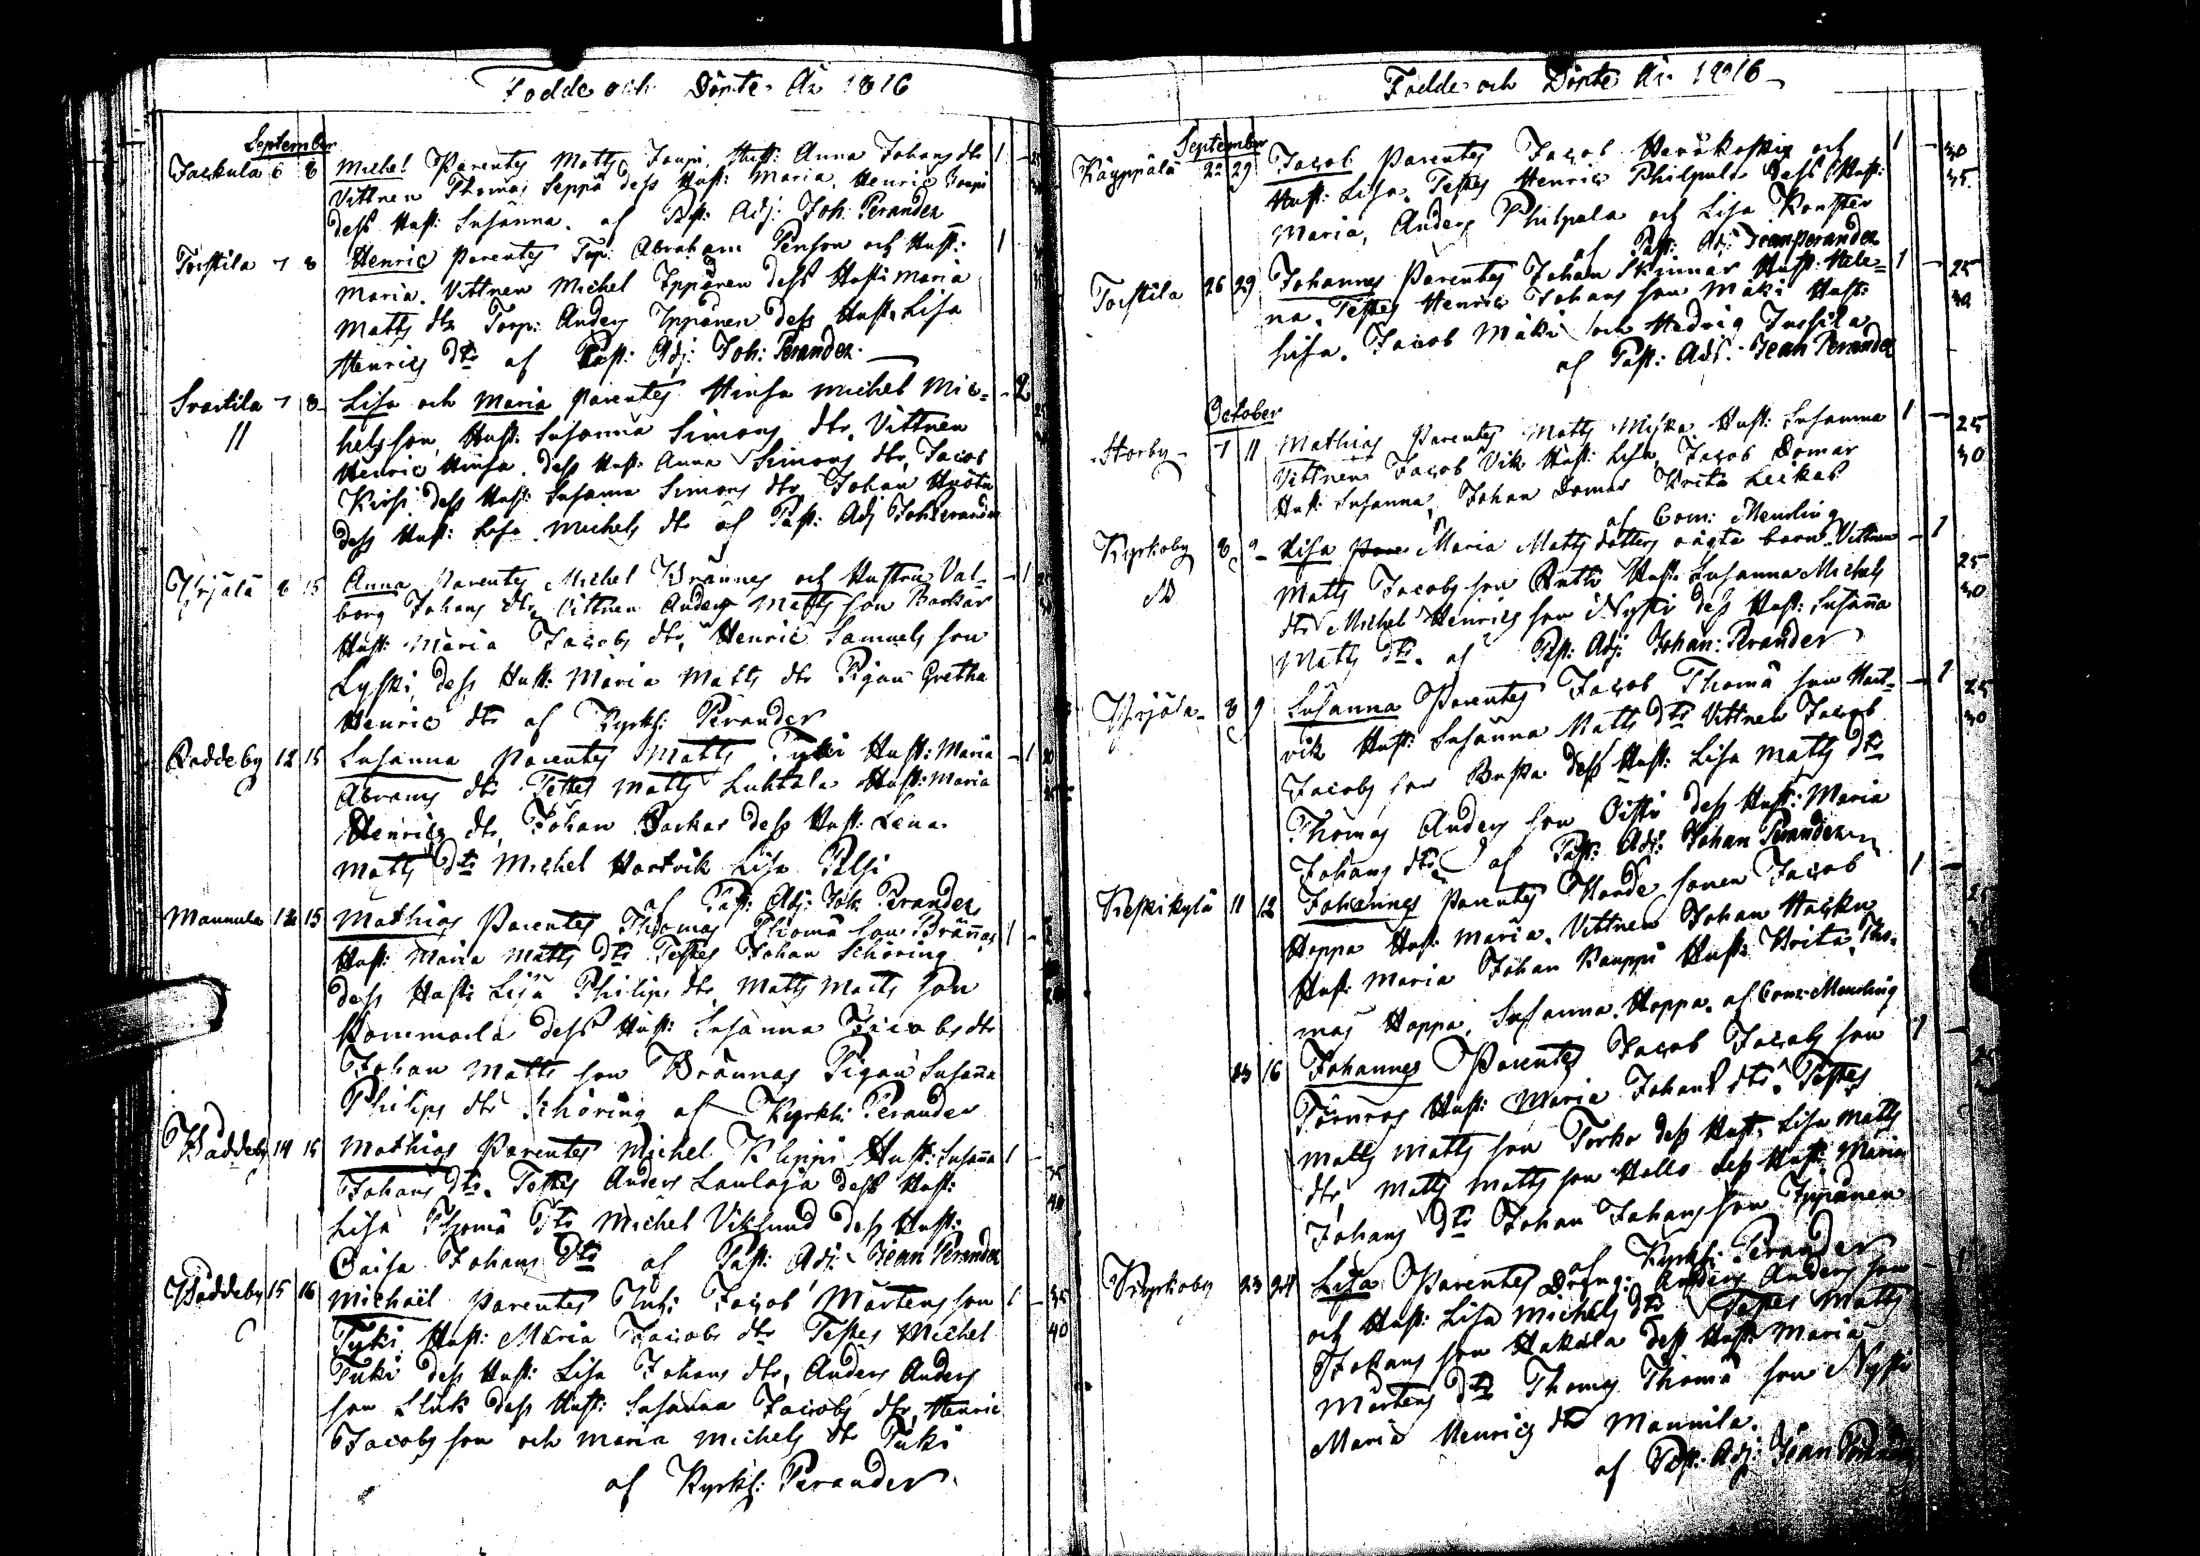 Födde och Döpte År 1816
September
Jackula 6 8 Michel Parentes Matts Jaupi, Hust: Anna Johans dtr 1
Vittnen Thomas Seppä dess Hust: Maria, Henric Jaupi
dess Hust: Susanna. af Past: Adj: Joh: Perander
Torstila 7 8 Henric Parentes Torp: Abraham Penson och Hust: 1
Maria. Vittnen Michel Ippänen dess Hust: Maria
Matts dtr Torp: Anders Ippänen dess Hust: Lisa
Henrics dtr af Past: Adj: Joh: Perander
Svartila 7 8 Lisa och Maria Parentes Hinsa Michel Mic= 2
11 hels son, Hust: Susanna Simons dtr, Vittnen
Henric Hinsa dess Hust: Anna Simons dtr, Jacob
Kirsi dess Hust: Susanna Simons dtr Johan
dess Hust: Lisa Michels dtr af Past: Adj Joh Perander
Yrjälä 8 15 Anna Parentes Michel Brännes och Hustru Val= 1
borg Johans dtr, Vittnen Anders Matts son Backar
Hust: Maria Jacobs dtr, Henric Samuels son
Lyski dess Hust: Maria Matts dtr Pigan Gretha
Henric dtr af Kyrkh: Perander
Raddeby 12 15 Susanna Parentes Matts Tyki Hust: Maria 1
Abrams dtr Testes Matts Luhtala Hust: Maria
Henrics dtr, Johan Backar dess Hust: Lena
Matts dtr Michel Hartvik Lisa Palsi
af Past: Adj: Joh. Perander
Mannula 12 15 Mathias Parentes Thomas Thomæ son Brännas 1
Hust: Maria Matts dtr Testes Johan Schöring
dess Hust: Lisa Philips dtr, Matts Matts son
Pommarla dess Hust: Susanna Jacobs dtr
Johan Matts son Brännas Pigan Susanna
Philips dtr Schöring af Kyrkh: Perander
Väddeby 14 15 Mathias Parentes Michel Klippi Hust: Susanna 1
Johans dtr. Testes Anders Laulaja dess Hust: 35
Lisa Thomæ dtr Michel Viklund dess Hust: 40
Caisa Johans dtr af Past: Adj: Jean Perander
Väddeby 15 16 Michaël Parentes Jacob Mårtens son 1 35
Tyki Hust: Maria Jacobs dtr Testes Michel 40
Tuki dess Hust: Lisa Johans dtr, Anders Anders
son Sluk dess Hust: Susanna Jacobs dtr, Henric
Jacobs son och Maria Michels dtr Tuki
af Kyrkh: Perander
Födde och Döpte År 1816
September
Käyppälä 22 29 Jacob Parentes Jacob Heräkoskis och 1 30
Hust: Lisa, Testes Henric Philpula dess Hust: 35
Maria, Anders Philpula och Lisa Konster
af Past: Adj: Jean Perander
Torstila 26 29 Johannes Parentes Johan Skinnar Hust: Hele= 1 25
na. Testes Henric Johans son Mäki Hust: 30
Lisa. Jacob Mäki och Hedvig Jussila
af Past: Adj: Jean Perander
October
Storby 7 11 Mathias Parentes Matts Miska Hust: Susanna 1 25
Vittnen Jacob Vik Hust: Lisa, Jacob Domar 30
Hust: Susanna, Johan Domar Brita Leikas
af Com: Mending
Kyrkoby 8 9 Lisa Maria Matts dotters oägta barn. Vittnen 1
Matts Jacobs son Anthi Hust: Susanna Michels 25
dtr Michel Henrics son Nyski dess Hust: Susanna 30
Matts dtr. af Past: Adj: Johan: Perander
Yrjäla 8 9 Susanna Parentes Jacob Thomæ son Hart= 1 25
vik Hust: Susanna Matts dtr Vittnen Jacob 30
Jacobs son Buska dess Hust: Lisa Matts dtr
Thomas Anders son Oisti dess Hust: Maria
Johans dtr af Past: Adj: Johan Perander
Keskikylä 11 12 Johannes Parentes Bonde sonen Jacob 1
Hoppa Hust: Maria. Vittnen Johan Hacku 25
Hust: Maria Johan Kauppi Hust: Brita, Tho=
mas Hoppa, Susanna Hoppa. af Com: Mending
13 16 Johannes Parentes Jacob Jacobs son 1
Törnros Hust: Maria Johans dtr. Testes 25
Matts Matts son Torko dess Hust: Lisa Matts
dtr, Matts Matts son Hallo dess Hust: Maria
Johans dtr Johan Johans son Ippänen
af Kyrkh: Perander
Kyrkoby 23 24 Lisa Parentes Dräng: Anders Anders son 1
och Hust: Lisa Michels dtr Testes Matts
Johans son Hakala dess Hust: Maria
Mårtens dtr Thomas Thomæ son Nyski
Maria Henrics dtr Mannila.
af Past: Adj: Jean Perander